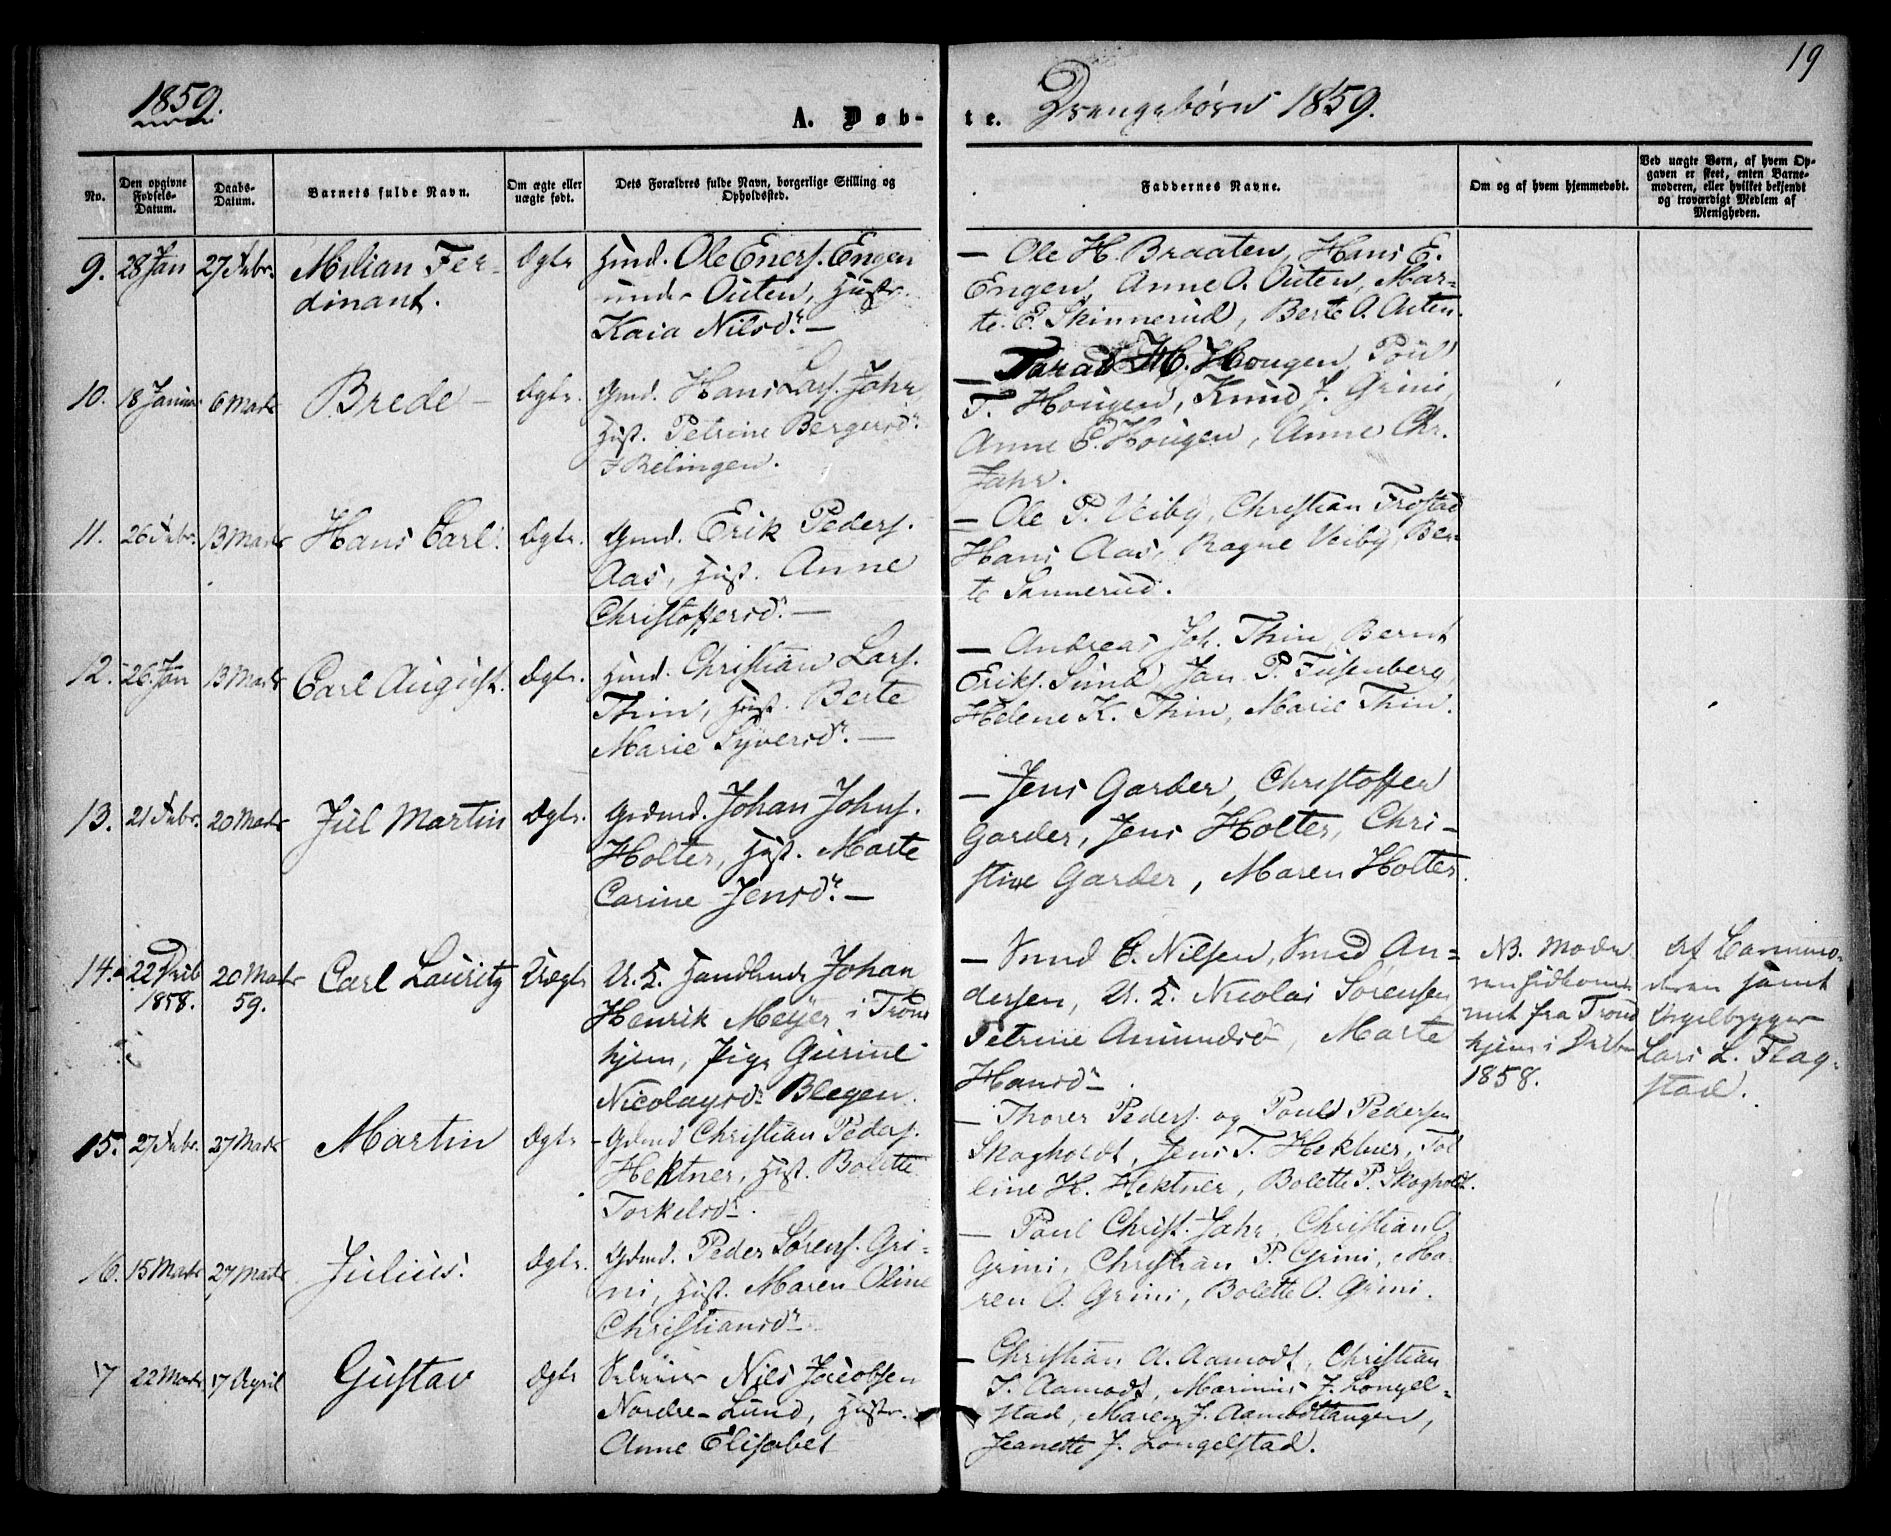 19
1859.
A. Døb-
te. Drengebørn 1859.
No.
Den opgivne Fødsels-Datum.
Daabs-Datum.
Barnets fulde Navn.
Om ægte eller uægte født.
Dets Forældres fulde Navn, borgerlige Stilling og Opholdssted.
Faddernes Navne.
Om og af hvem hjemmedøbt.
Ved uægte Børn, af hvem Opgaven er skeet, enten Barnemoderen, eller hvilket bekjendt og troværdigt Medlem af Menigheden.
9. 28 Jan 27 Febr. Milian Fer-
dinant.
Ægte
Husmd. Ole Eners. Engen
under Outen, Hustr.
Kaia Nilsdr. —
— Ole H. Braaten, Hans E.
Engen, Anne O. Outen, Mar-
te E. Skinnerud, Berte O. Outen.
10. 18 Januar 6 Marts Brede —
Ægte.
Gmd. Hans Lars. Jahr,
Hust. Petrine Bergersdr.
i Relingen.
— Tarald H. Hougen, Poul
T. Hougen, Knud J. Grini,
Anne E. Hougen, Anne Chr.
Jahr.
11. 26 Febr. 13 Marts Hans Carl.
Ægte.
Gmd. Erik Peders.
Aas, Hust. Anne
Christoffersdr. —
— Ole P. Veiby, Christian Trostad
Hans Aas, Ragne Veiby, Ber-
te Sannerud.
12. 26 Jan 13 Marts Carl August.
Ægte.
Husmd. Christian Lars.
Thin, Hust. Berte
Marie Syversdr. —
— Andreas Joh. Thin, Bernt
Eriks. Sund, Jan P. Fusenberg,
Helene K. Thin, Marie Thin.
13. 21 Febr. 20 Marts Jul Martin
Ægte.
Grdmd. Johan Johns.
Holter, Hust. Marte
Carine Jensdr. —
— Jens Garder, Christoffer
Garder, Jens Holter, Chri-
stine Garder, Maren Holter.
14. 22 Decb 1858. 20 Marts 59. Carl Lauritz
Uægte
U. K. Handlende Johan
Henrik Meyer i Trond
hjem, Pige Gurine
Nicolaysdr. Blegen.
— Knud E. Nilsen, Knud An-
dersen, U. K. Nicolai Sørensen
Petrine Amundsdr, Marte
Hansdr. .
NB. Mode
ren hidkom
met fra Trond
hjem i Decbr
1858.
Af Barnemo-
deren samt
Orgelbygger
Lars L. Flag-
stad.
15. 27 Febr. 27 Marts Martin
Ægte
Grdmd Christian Peders.
Hektner, Hust. Bolette
Torkelsdr.
— Thorer Peders. og Poul Pedersen
Skogholdt, Jens T. Hektner, Tol
line H. Hektner, Bolette P. Skogholdt.
16. 15 Marts 27 Marts Julius.
Ægte.
Grdmd. Peder Sørens. Gri-
ni, Hust. Maren Oline
Christiansdr.
— Poul Christ. Jahr, Christian O.
Grini, Christian P. Grini, Ma-
ren O. Grini, Bolette O. Grini.
17 22 Marts 17 April Gustav
Ægte
Nils Jacobsen
Nordre-Lund, Hustr.
Anne Elisabet
— Christian A. Aamodt, Christian
S. Aamodt, Marinius J. Longel-
stad, Maren J. Aamodtangen,
Jeanette J. Longelstad.